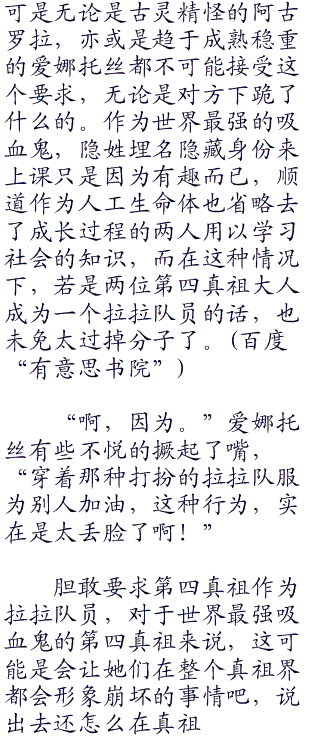 可是无论是古灵精怪的阿古
罗拉，亦或是趋于成熟稳重
的爱娜托丝都不可能接受这
个要求，无论是对方下跪了
什么的。作为世界最强的吸
血鬼，隐姓埋名隐藏身份来
上课只是因为有趣而已，顺
道作为人工生命体也省略去
了成长过程的两人用以学习
社会的知识，而在这种情况
下，若是两位第四真祖大人
成为一个拉拉队员的话，也
未免太过掉分子了。(百度
“有意思书院”)
“啊，因为。”爱娜托
丝有些不悦的撅起了嘴，
“穿着那种打扮的拉拉队服
为别人加油，这种行为，实
在是太丢脸了啊！”
胆敢要求第四真祖作为
拉拉队员，对于世界最强吸
血鬼的第四真祖来说，这可
能是会让她们在整个真祖界
都会形象崩坏的事情吧，说
出去还怎么在真祖